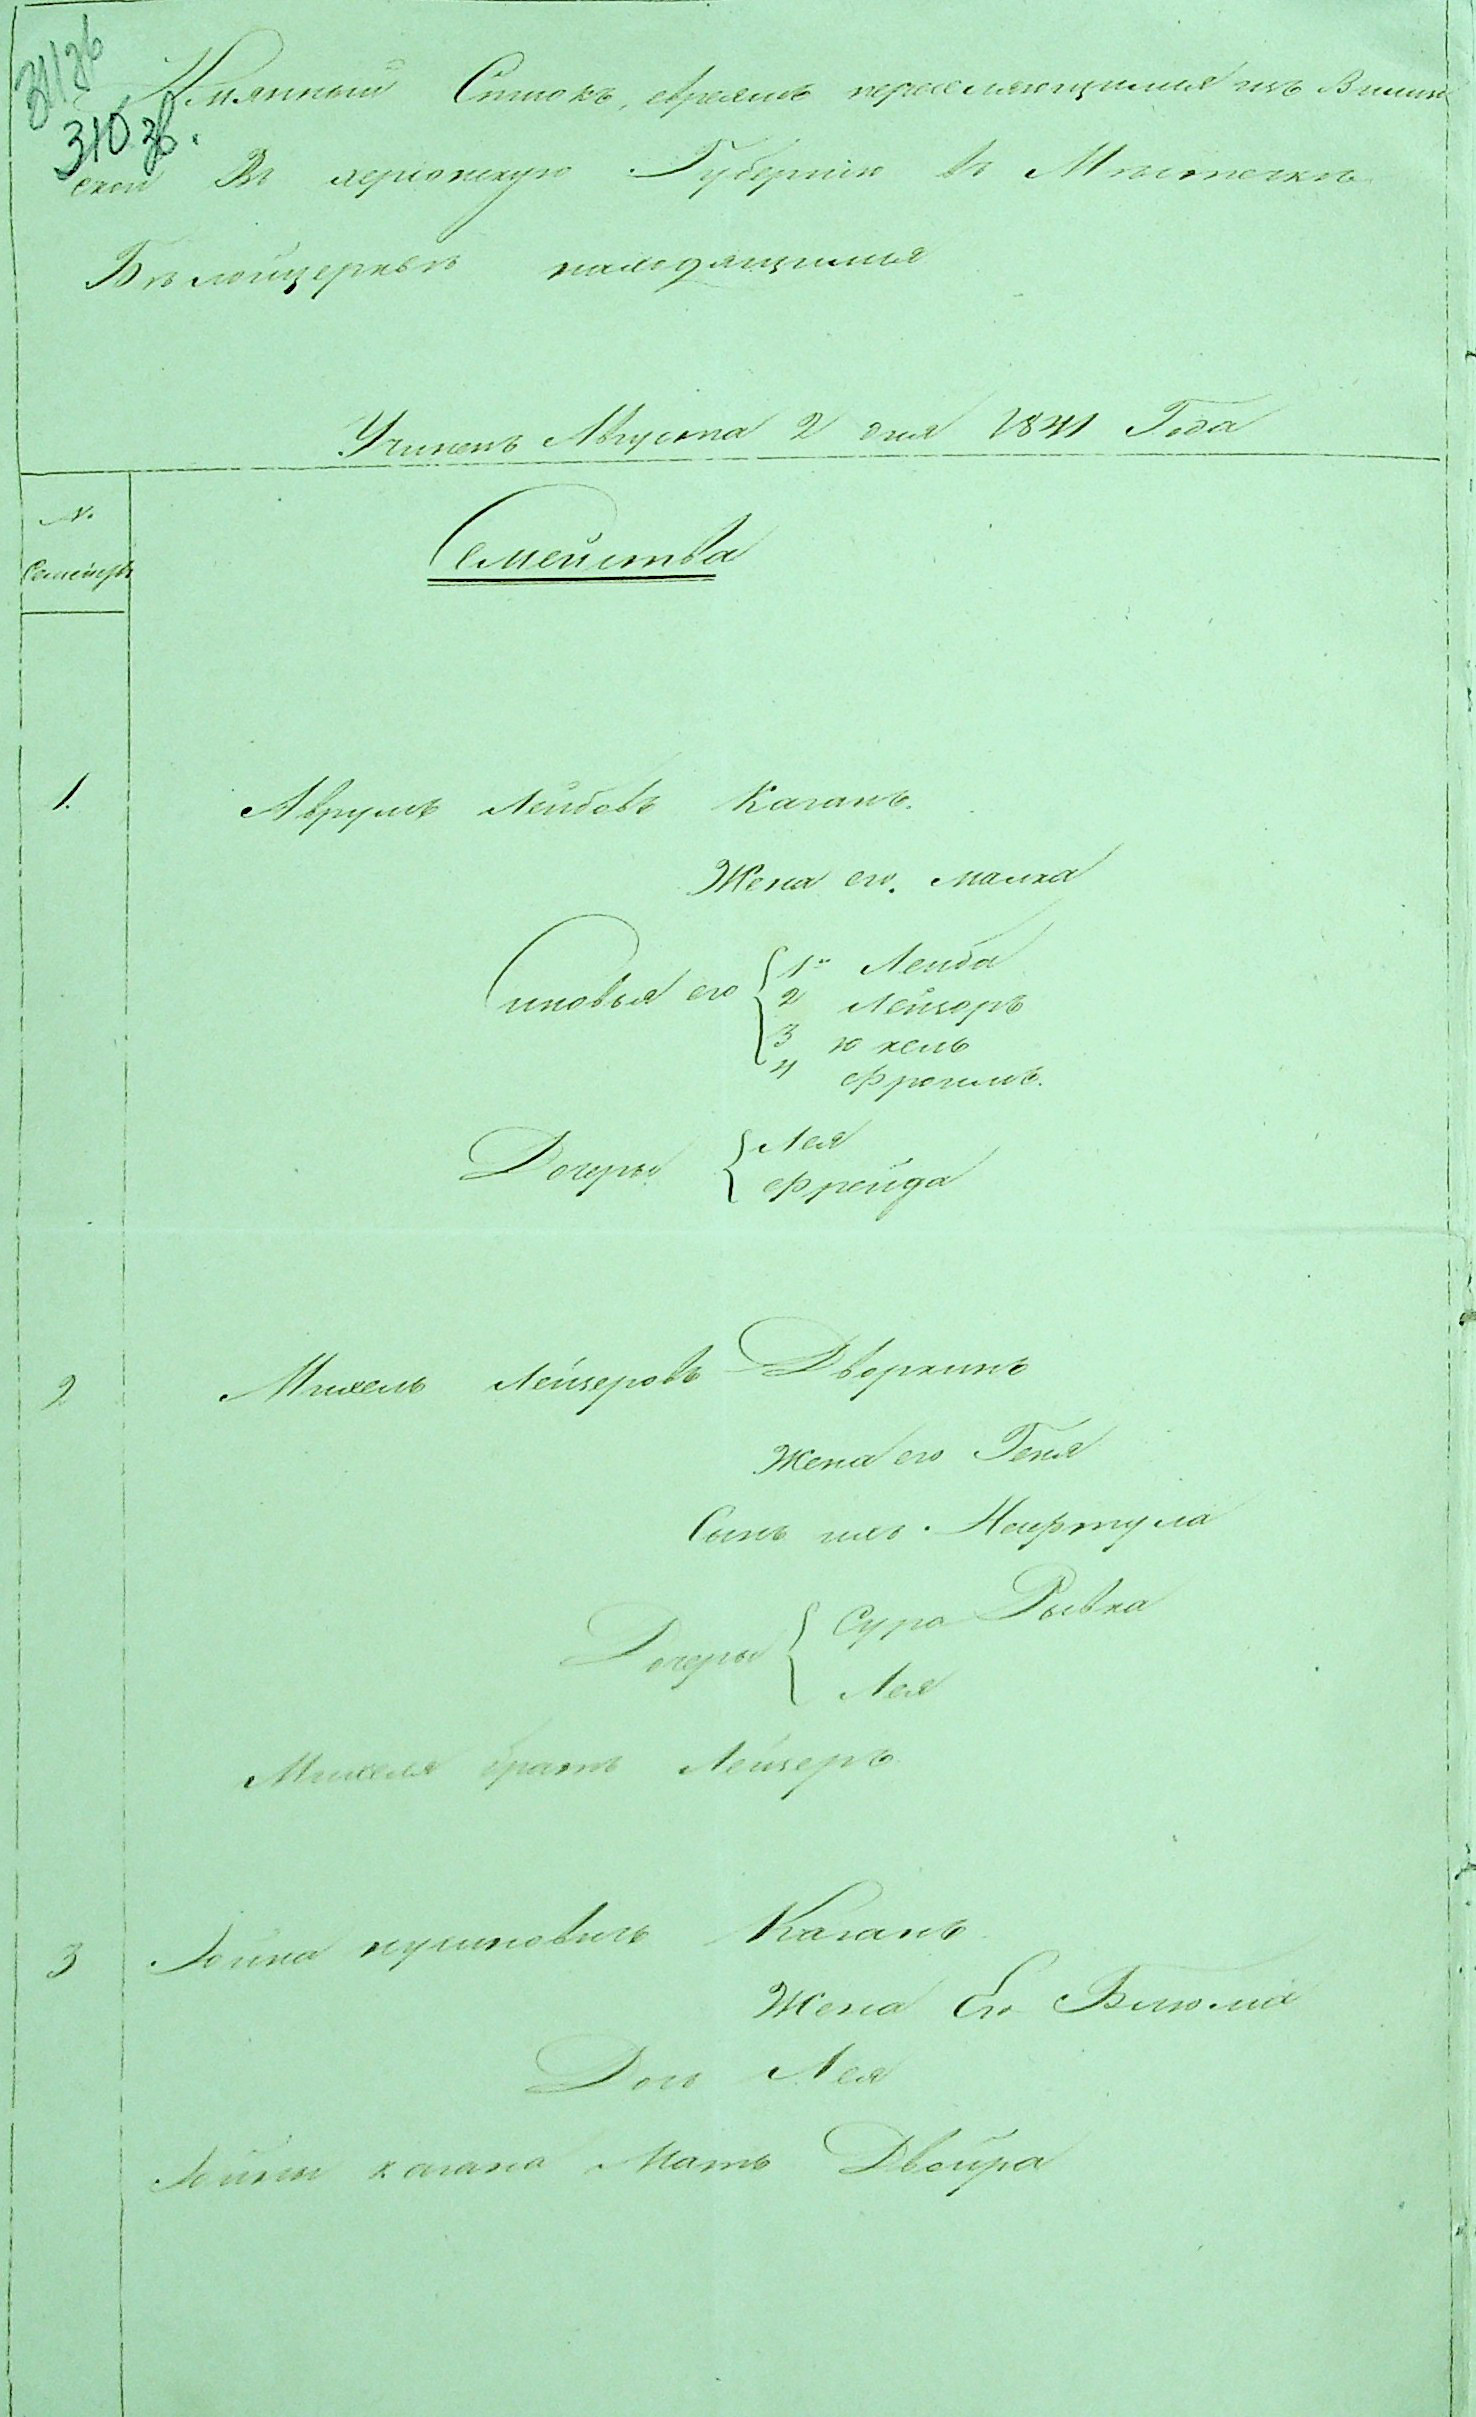 311 зв
310 зв.
Имянный Список, евреямъ переселяющимся изъ Вилен
ской В херсонскую Губернію въ Мѣстечкѣ
Бѣлойцерквѣ находящимся
Учиненъ Августа 2 дня 1841 Года
№
Семейства
1. Аврумъ Лейбовъ Каганъ.
Жена его. Малка
Сыновья его
1й Лейба
2 Лейзоръ
3 Юхель
4 Фроимъ.
Дочеры
Лея
Фрейда
2 Михель Лейзеровъ Дворкинъ
Жена его Геня
Сынъ ихъ. Нефтула
Дочеры
Сура Рывка
Лея
Михеля братъ Лейзеръ
3 Іойна Каганъ
Жена Его Блюма
Доч Лея
Іойны кагана Мать Двойра